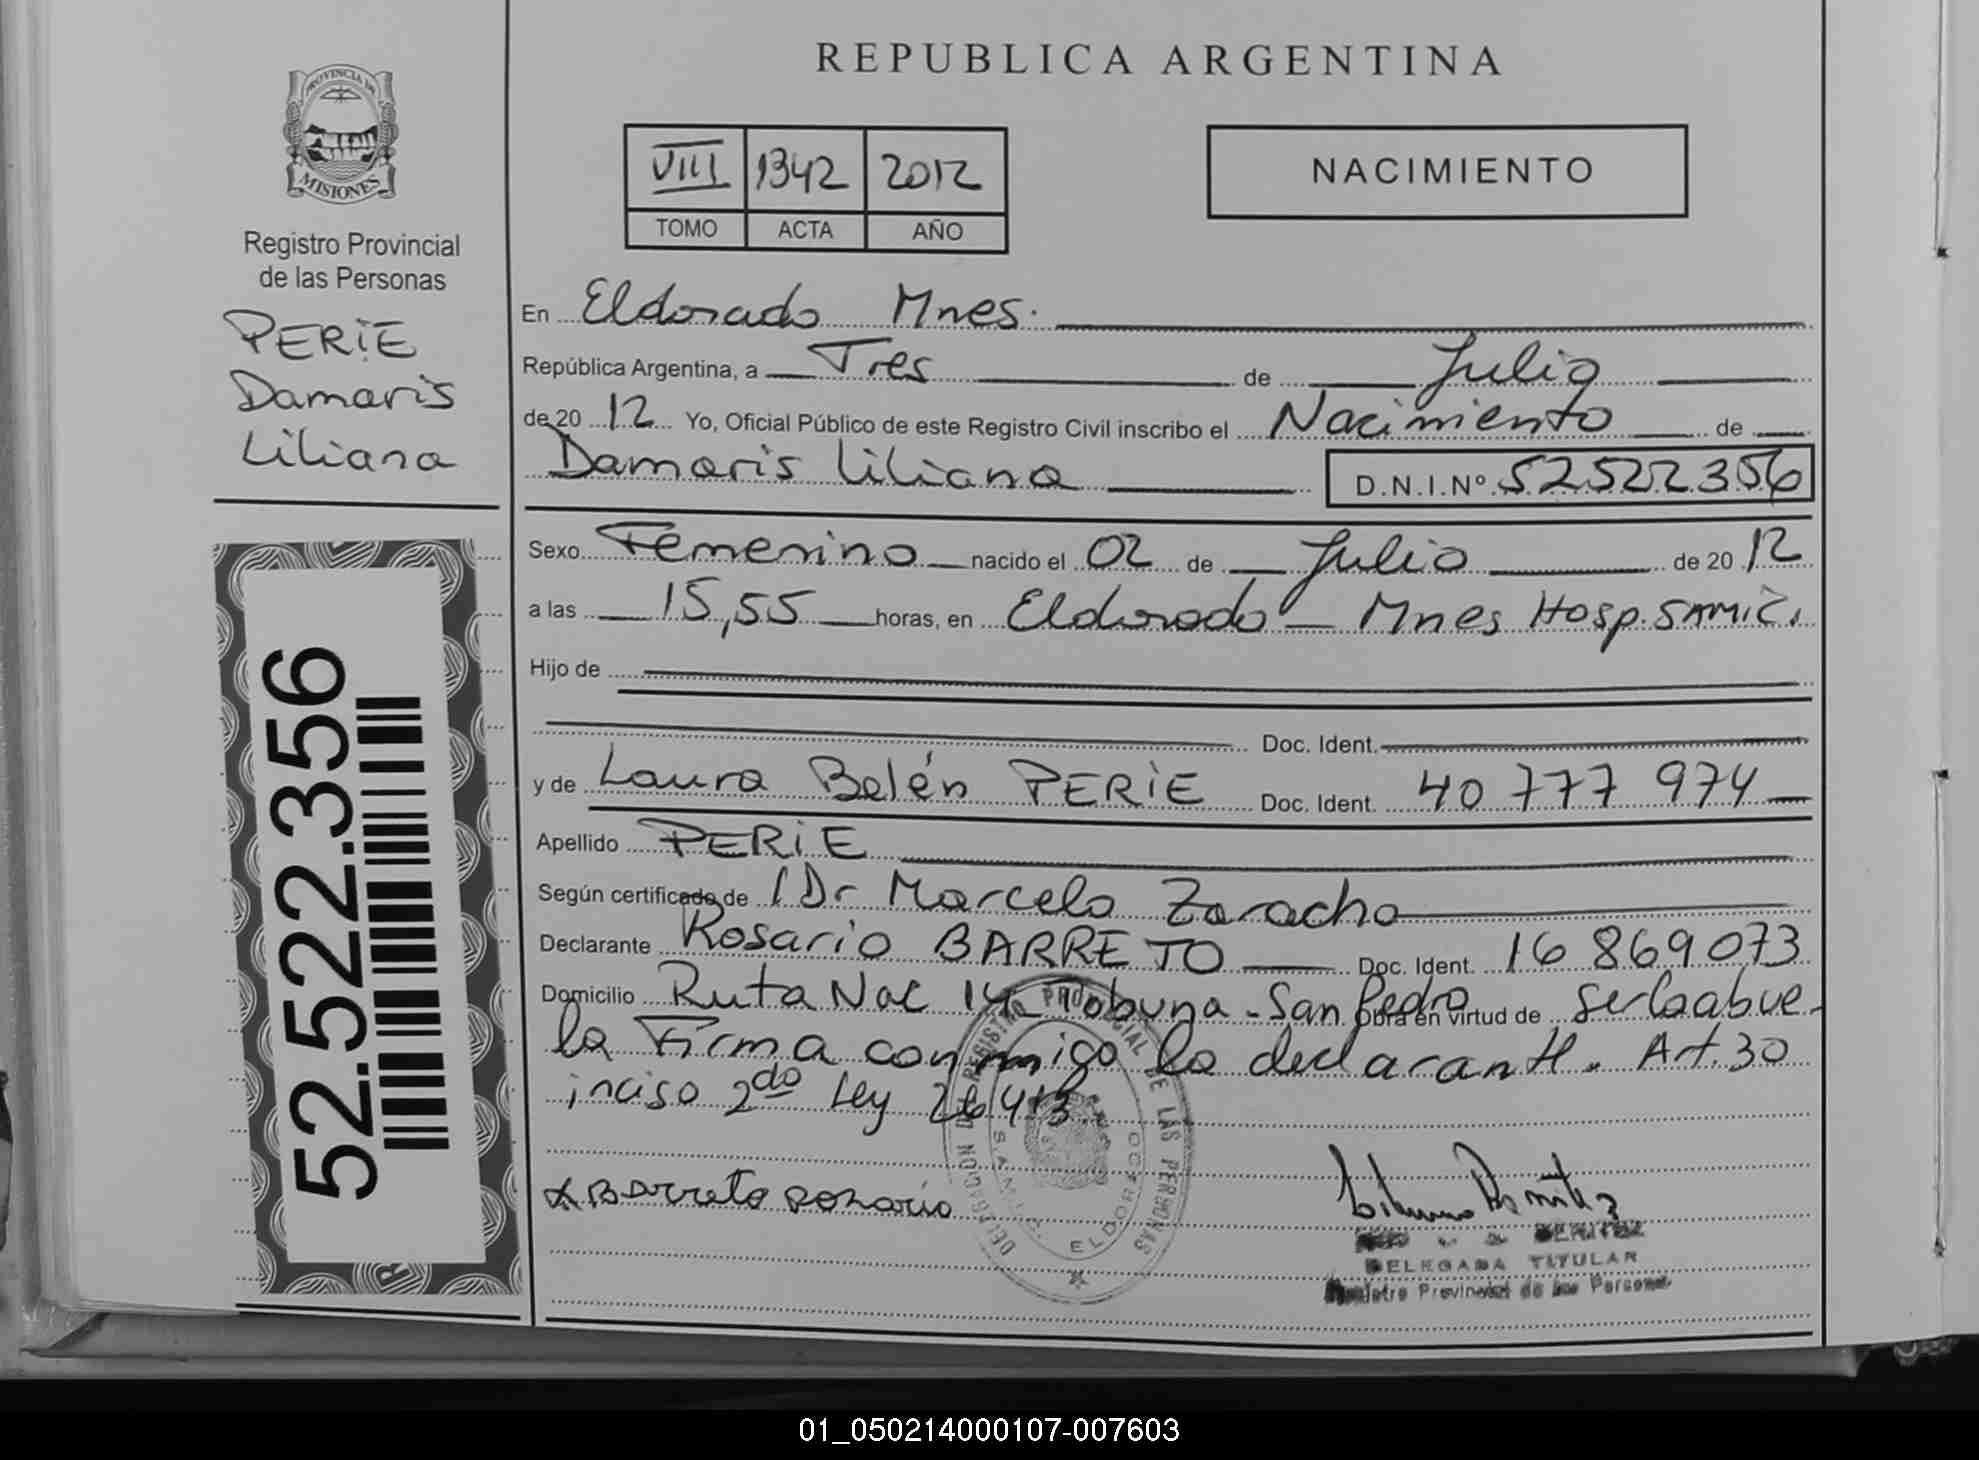 REPUBLICA ARGENTINA
PROVINCIA DE
MISIONES
Registro Provincial
de las Personas
PERIE
Damaris
Liliana
52.522.356
VIII 1342 2012
TOMO ACTA AÑO
NACIMIENTO
En Eldorado Mnes.
República Argentina, a Tres de Julio
de 20 12 Yo, Oficial Público de este Registro Civil inscribo el Nacimiento de
Damaris Liliana D.N.I.Nº 52522356
Sexo Femenino nacido el 02 de Julio de 20 12
a las 15,55 horas, en Eldorado - Mnes Hosp. SAMIC.
Hijo de
Doc. Ident.
y de Laura Belén PERIE Doc. Ident. 40 777 974
Apellido PERIE
Según certificado de Dr Marcelo Zaracho
Declarante Rosario BARRETO Doc. Ident. 16 869 073
Domicilio Ruta Nac 14 Tobuna - San Pedro Obra en virtud de ser la abue-
la Firma conmigo la declarante. Art. 30
inciso 2do Ley 26413.
Barreto Rosario
DELEGACION DE REGISTRO PROVINCIAL DE LAS PERSONAS
ELDORADO
BENITEZ
DELEGADA TITULAR
Registro Provincial de las Personas
01_050214000107-007603